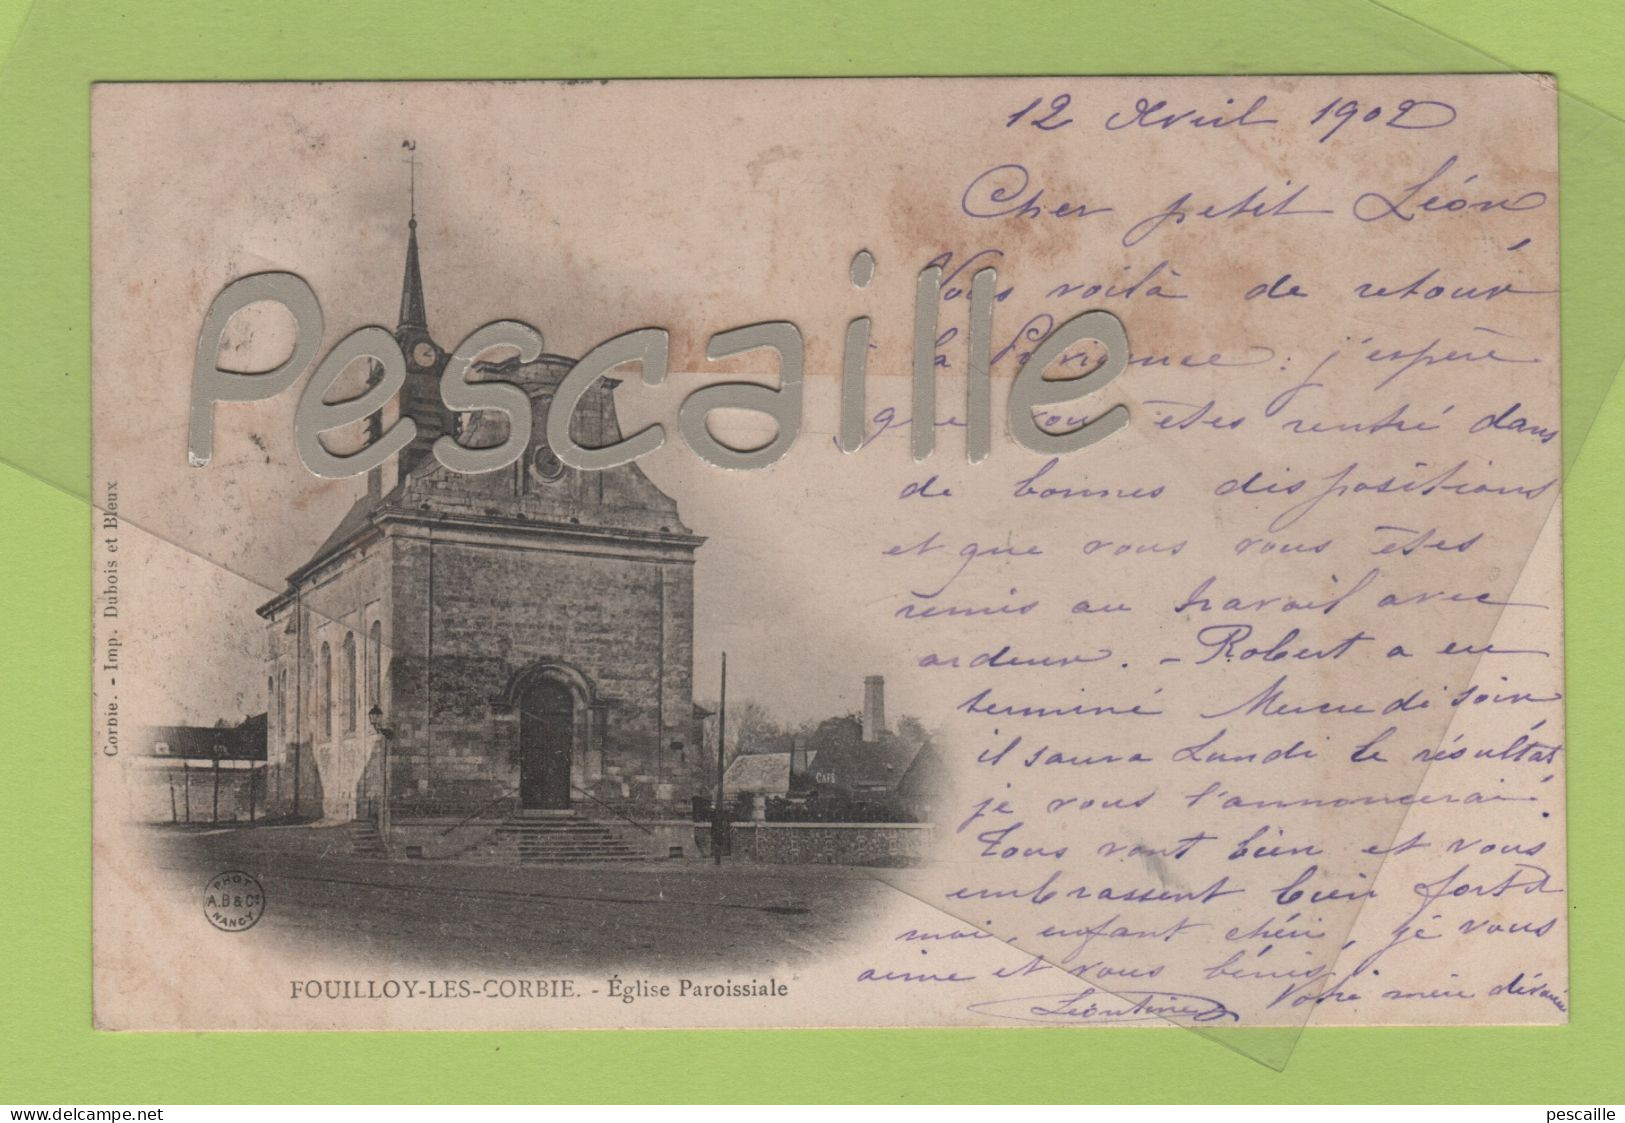 12 Avril 1902
Cher petit Léon
Vous voilà de retour
à la Providence : j'espère
que vous êtes rentré dans
de bonnes dispositions
et que vous vous êtes
remis au travail avec
ardeur. - Robert a eu
terminé Mercredi soir
il saura Lundi le résultat
je vous l'annoncerai.
Tous vont bien et vous
embrassent bien fort et
moi, enfant chéri, je vous
aime et vous bénis.
Votre mère dévouée
Léontine
Pescaille
Corbie. - Imp. Dubois et Bleux
CAFÉ
PHOT
A.B & Cie
NANCY
FOUILLOY-LES-CORBIE. - Église Paroissiale
delcampe.net
pescaille